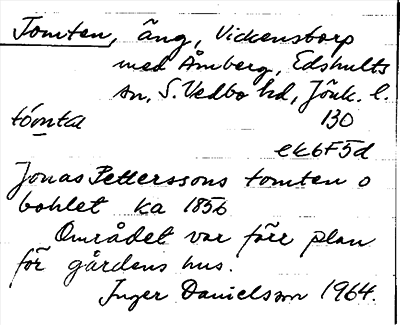 Tomten, äng, Vickensborp
med Åmberg, Edshults
sn, S. Vedbo hd, Jönk. l.
tómta 130
ek6F5d
Jonas Petterssons tomten o
bohlet ka 1856
Området var förr plan
för gårdens hus.
Inger Danielsson 1964.